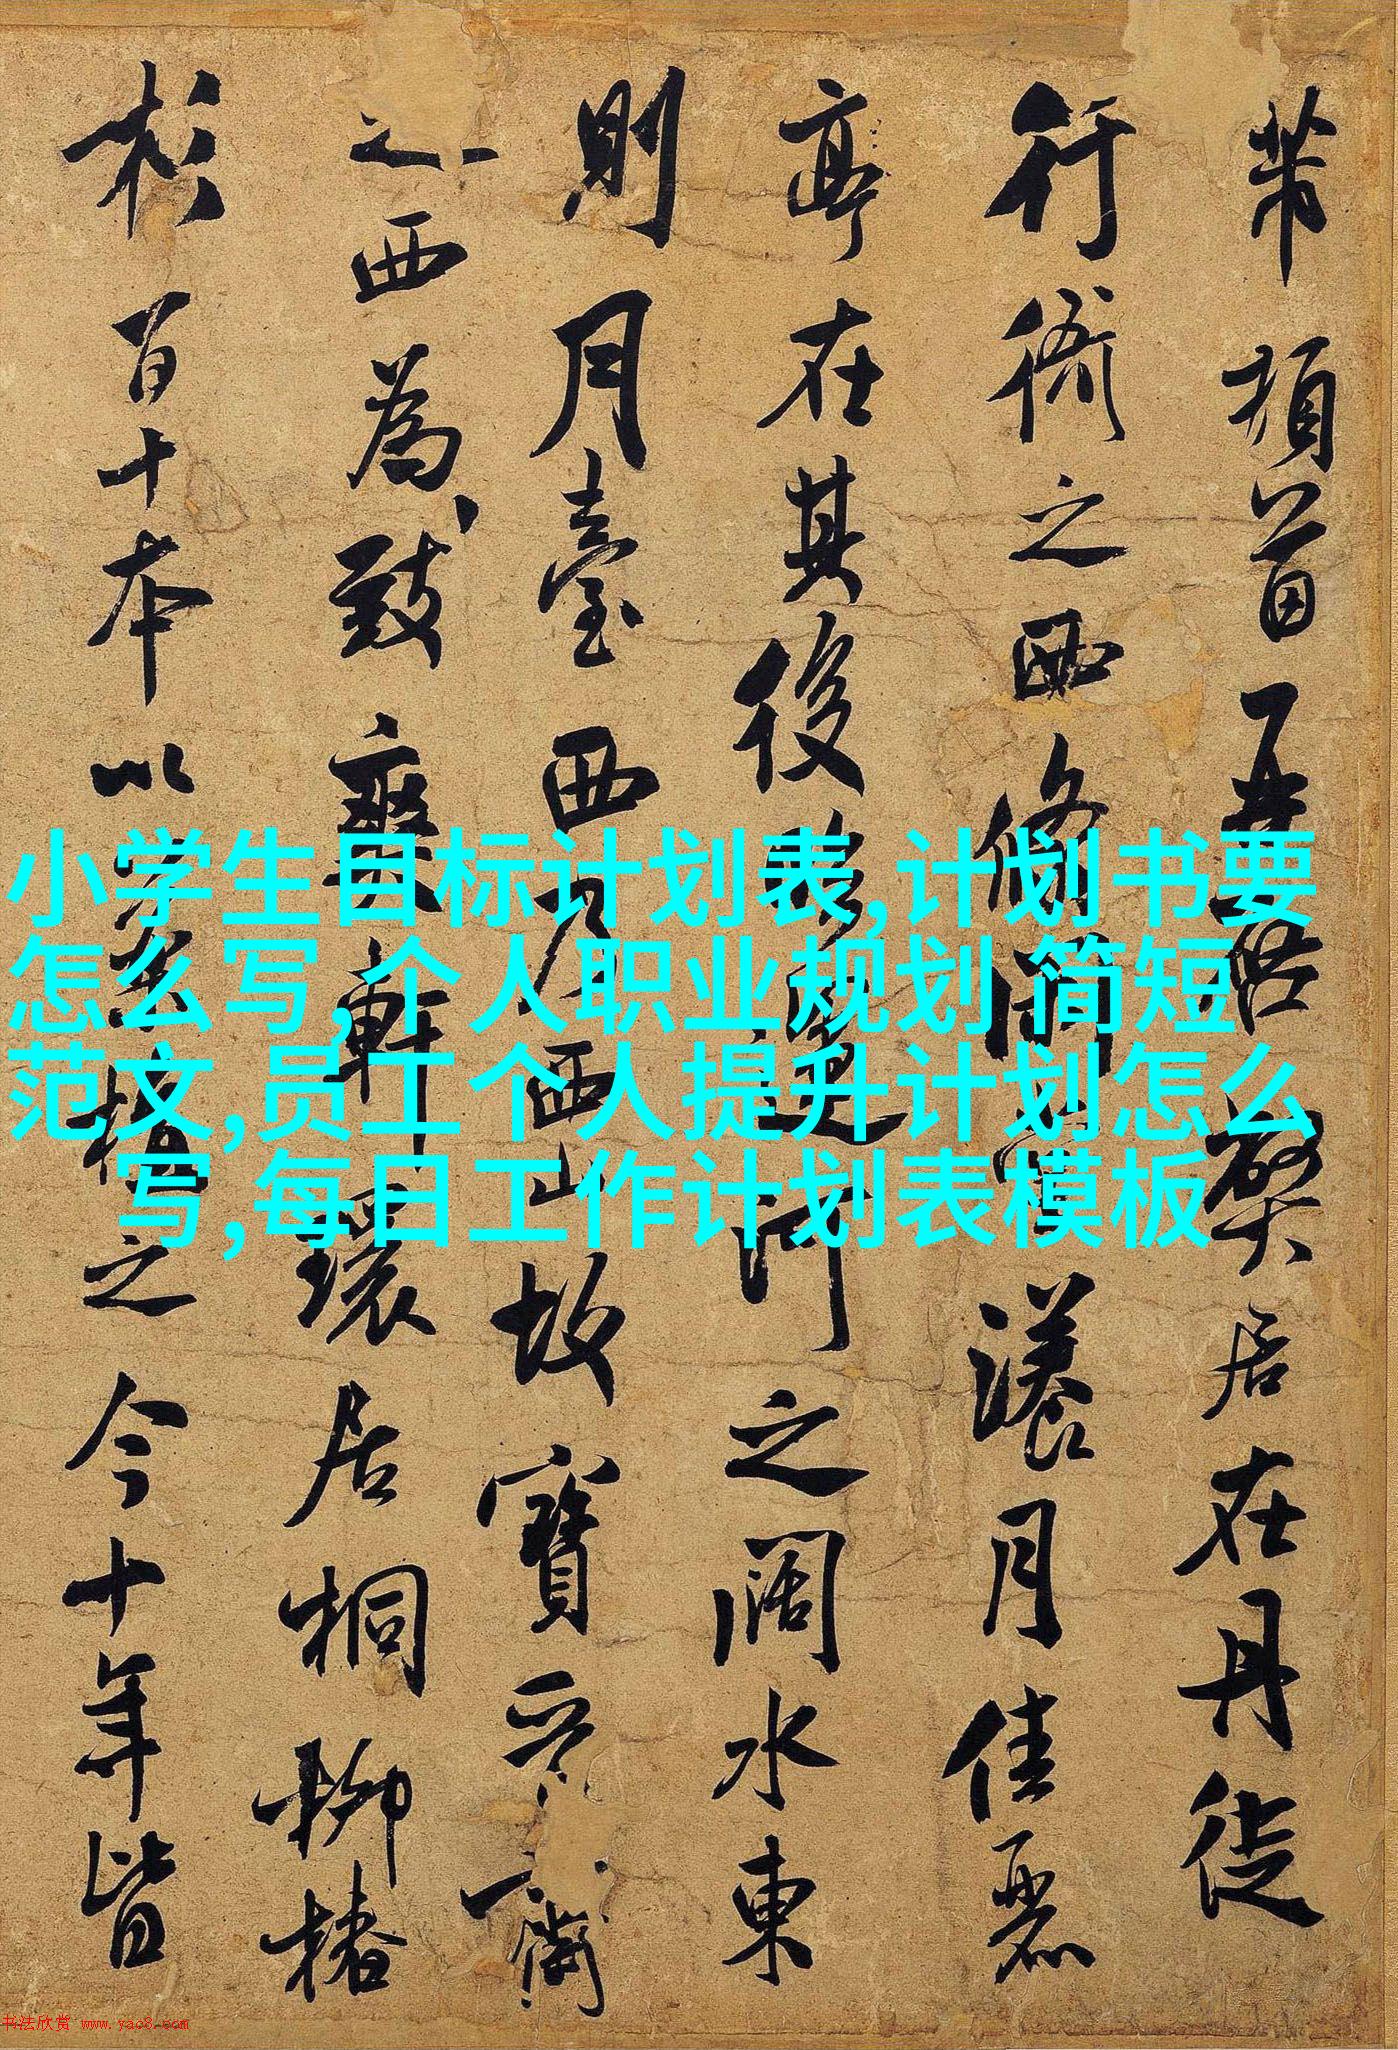 芾頓首再啓弊居在丹徒
行衙之西脩閒堂漾月佳麗
亭在其後臨運河之闊水東
則月臺西乃西山故寶晉齋
之西為致爽軒環居桐柳椿
杉百十本以植之今十年皆
小学生目标计划表,计划书要
怎么写,个人职业规划 简短
范文,员工个人提升计划怎么
写,每日工作计划表模板
书法欣赏 www.yac8.com